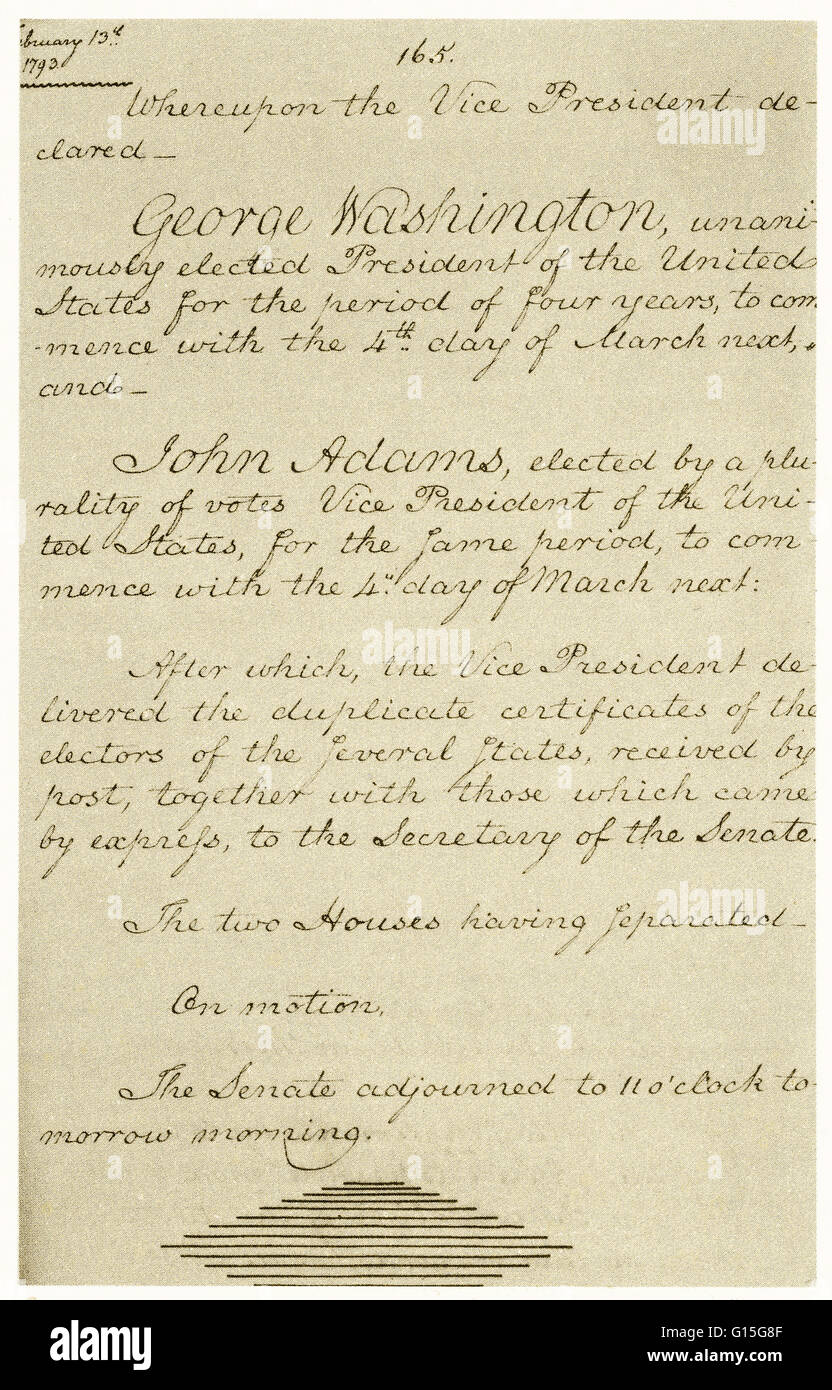 ebruary 13th
1793.
165.
Whereupon the Vice President de-
clared—
George Washington, unani-
mously elected President of the United
States for the period of four years, to com
-mence with the 4th day of March next,
and—
John Adams, elected by a plu-
rality of votes Vice President of the Uni-
ted States, for the same period, to com-
mence with the 4th day of March next:
After which, the Vice President de-
livered the duplicate certificates of the
electors of the several States, received by
post, together with those which came
by expreſs, to the Secretary of the Senate.
The two Houses having separated—
On motion,
The Senate adjourned to 11 o'clock to-
morrow morning.
alamy
Image ID: G15G8F
www.alamy.com